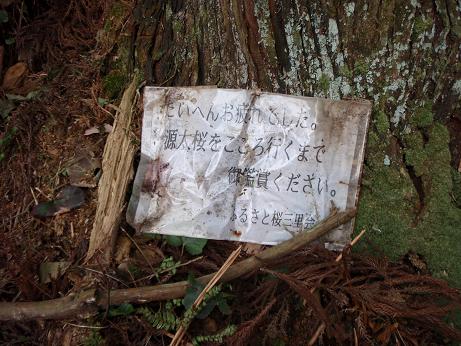 たいへんお疲れでした。
源太桜をこころ行くまで
御鑑賞ください。
ふるさと桜三里会